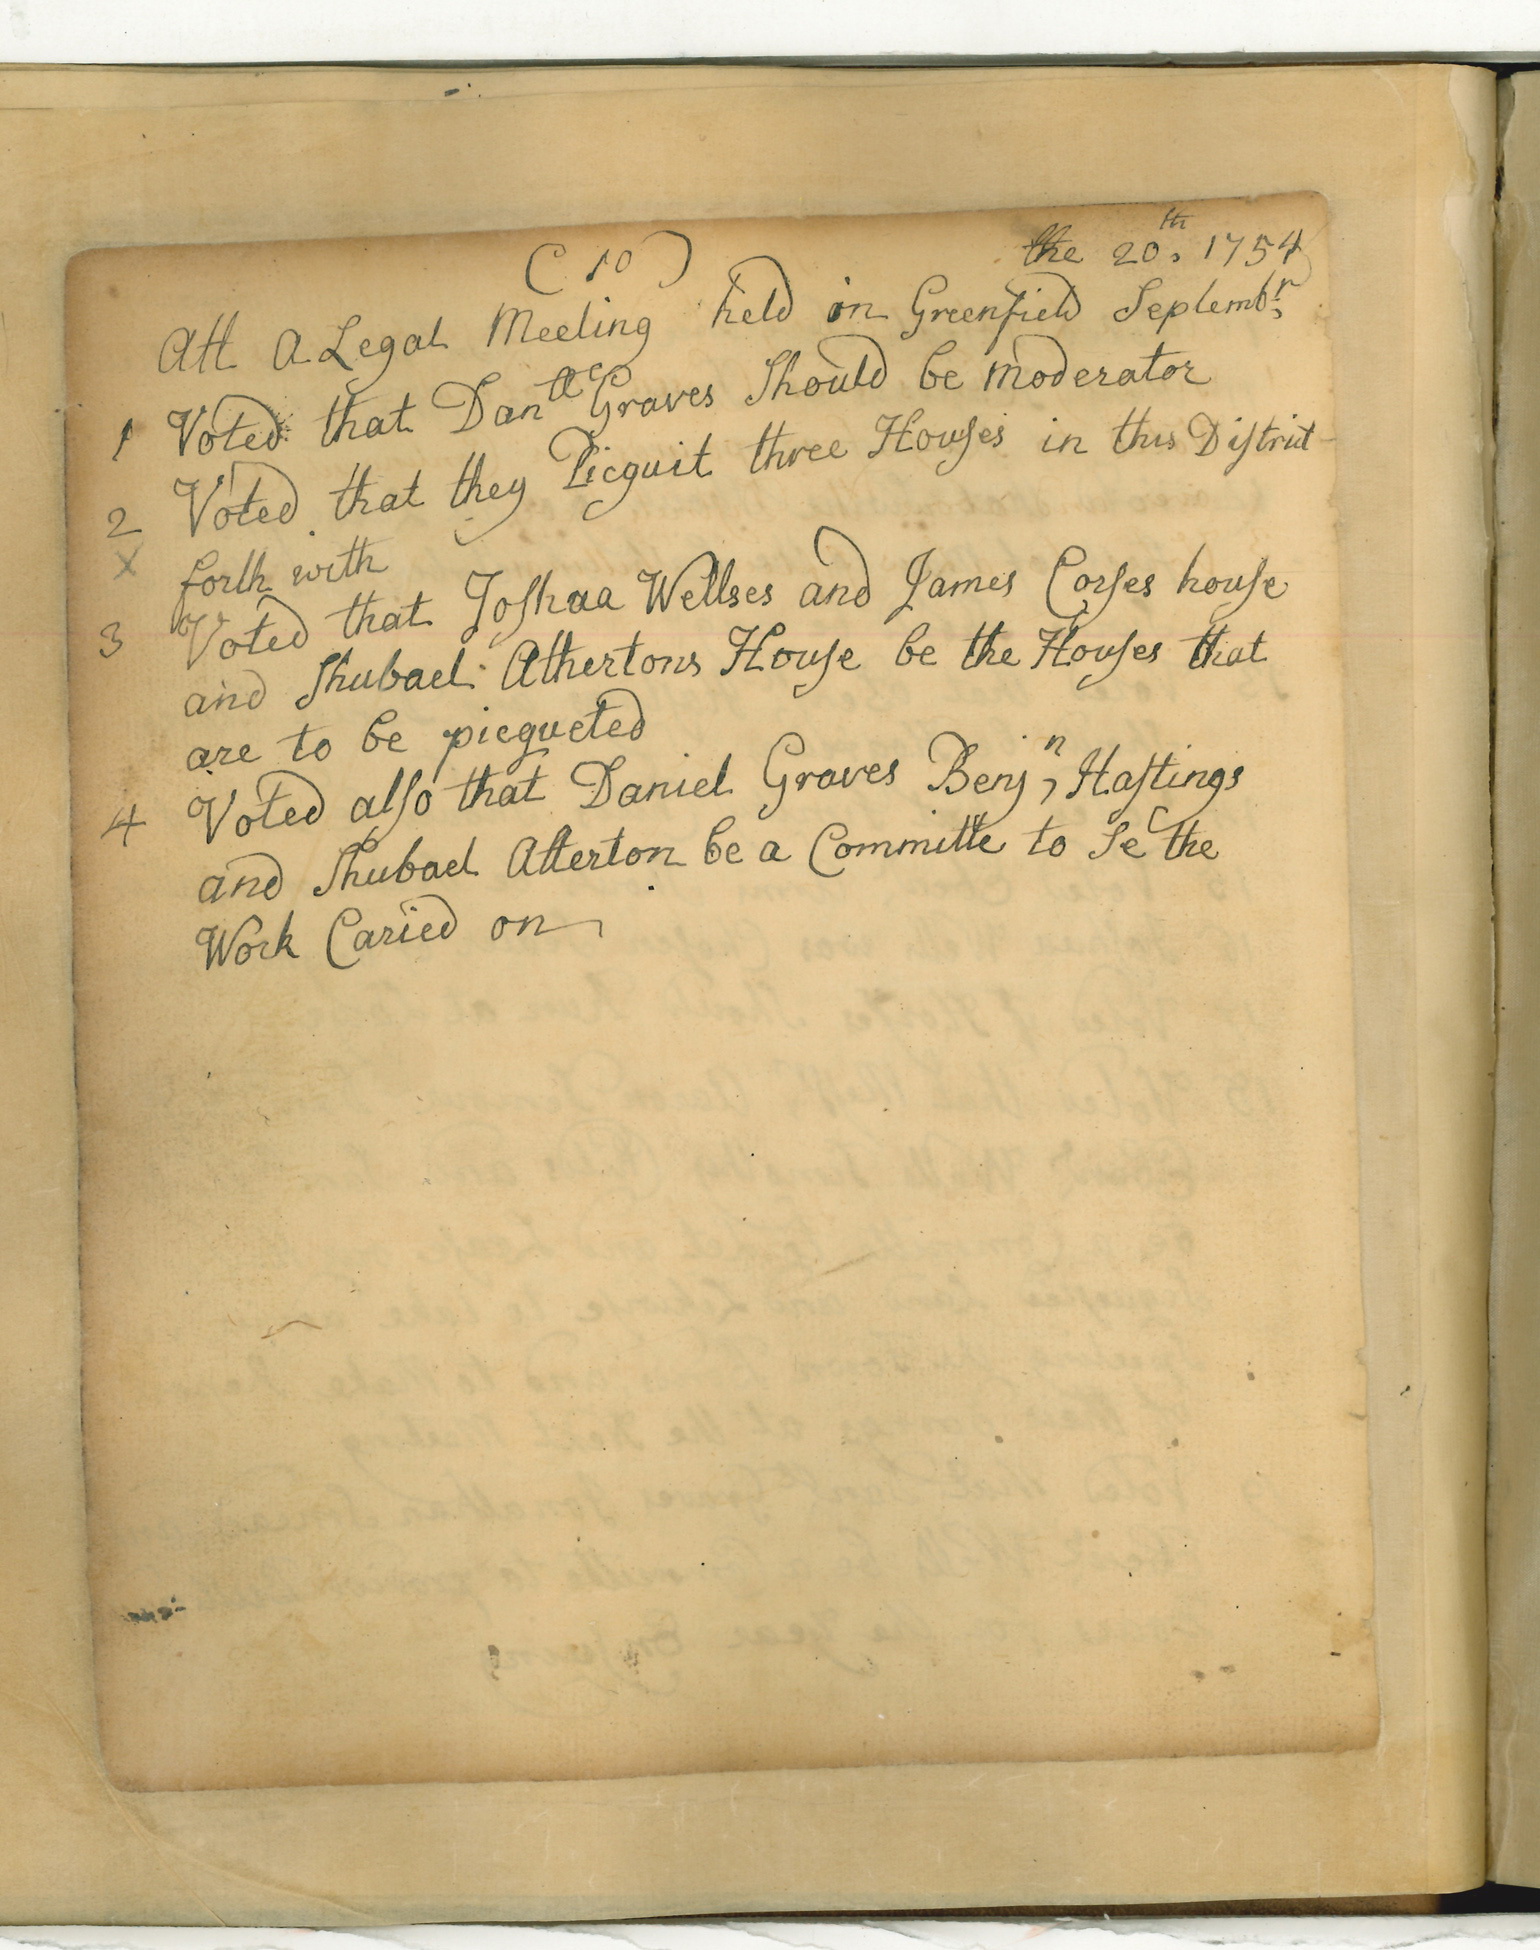 ( 10 )
the 20th. 1754
Att A Legal Meeting held in Greenfield Septembr,
1 Voted that Danll Graves Should be Moderator
2 Voted that they Picquit three Houses in this District
X forth with
3 Voted that Joshua Wellses and James Corses house
and Shubael Athertons House be the Houses that
are to be picqueted
4 Voted also that Daniel Graves Benjn, Hastings
and Shubael Atterton be a Committe to Se the
Work Caried on